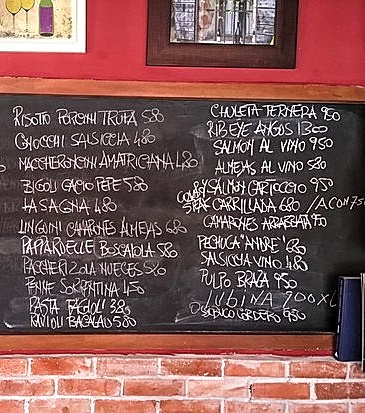 RISOTTO PORCINI TRUFA 580
GNOCCHI SALSICCIA 480
MACCHERONCINI AMATRICIANA 480
BIGOLI CACIO PEPE 580
LASAGNA 480
LINGUINI CAMARONES ALMEJAS 680
PAPPARDELLE BOSCAIOLA 580
PACCHERI ZOLA NUECES 520
PENNE SORRENTINA 450
PASTA FAGIOLI 380
RAVIOLI BACALAO 580
CHULETA TERNERA 950
RIBEYE ANGUS 1300
SALMON AL VINO 950
ALMEJAS AL VINO 580
SALMON CARTOCCIO 950
CARRILLADA 680 / ACON 750
CAMARONES ARRABBIATA 950
PECHUGA "ANDRE" 680
SALSICCIA VINO 480
PULPO BRAZA 950
LUBINA 900XL
OSSOBUCO CORDERO 950